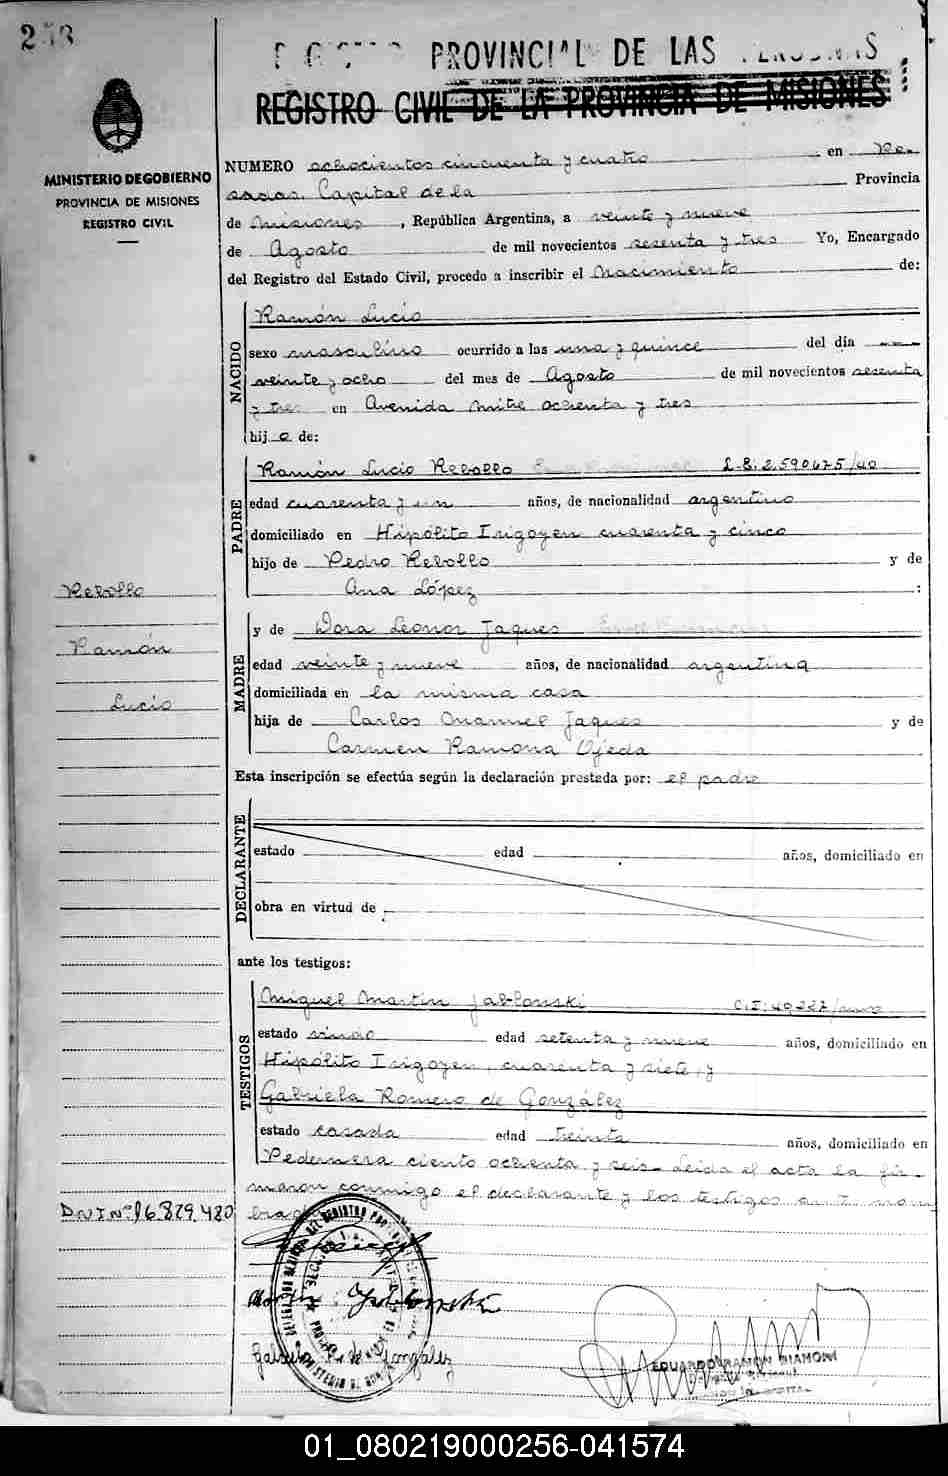 253
PROVINCIAL DE LAS
REGISTRO CIVIL DE LA PROVINCIA DE MISIONES
MINISTERIO DE GOBIERNO
PROVINCIA DE MISIONES
REGISTRO CIVIL
NUMERO ochocientos cincuenta y cuatro en Po-
sadas, Capital de la Provincia
de Misiones, República Argentina, a veinte y nueve
de Agosto de mil novecientos sesenta y tres Yo, Encargado
del Registro del Estado Civil, procedo a inscribir el Nacimiento de:
NACIDO
Ramón Lucio
sexo masculino ocurrido a las una y quince del día
veinte y ocho del mes de Agosto de mil novecientos sesenta
y tres en Avenida Mitre ochenta y tres
hijo de:
PADRE
Ramón Lucio Rebollo L.E: 2.590675/40
edad cuarenta y un años, de nacionalidad argentino
domiciliado en Hipólito Irigoyen cuarenta y cinco
hijo de Pedro Rebollo y de
Ana López :
MADRE
y de Dora Leonor Jaques
edad veinte y nueve años, de nacionalidad argentina
domiciliada en la misma casa
hija de Carlos Manuel Jaques y de
Carmen Ramona Ojeda
Esta inscripción se efectúa según la declaración prestada por: el padre
DECLARANTE
estado edad años, domiciliado en
obra en virtud de
ante los testigos:
TESTIGOS
Miguel Martin Jablonski C.I: 49227/
estado viudo edad setenta y nueve años, domiciliado en
Hipólito Irigoyen, cuarenta y siete, y
Gabriela Romero de González
estado casada edad treinta años, domiciliado en
Pedernera ciento ochenta y seis. Leida el acta la fir-
maron conmigo el declarante y los testigos ant. nom
brados
Rebollo
Ramón
Lucio
DNI Nº 16.829.480
Gabriela R. de González
EDUARDO RAMON BIANONI
01_080219000256-041574